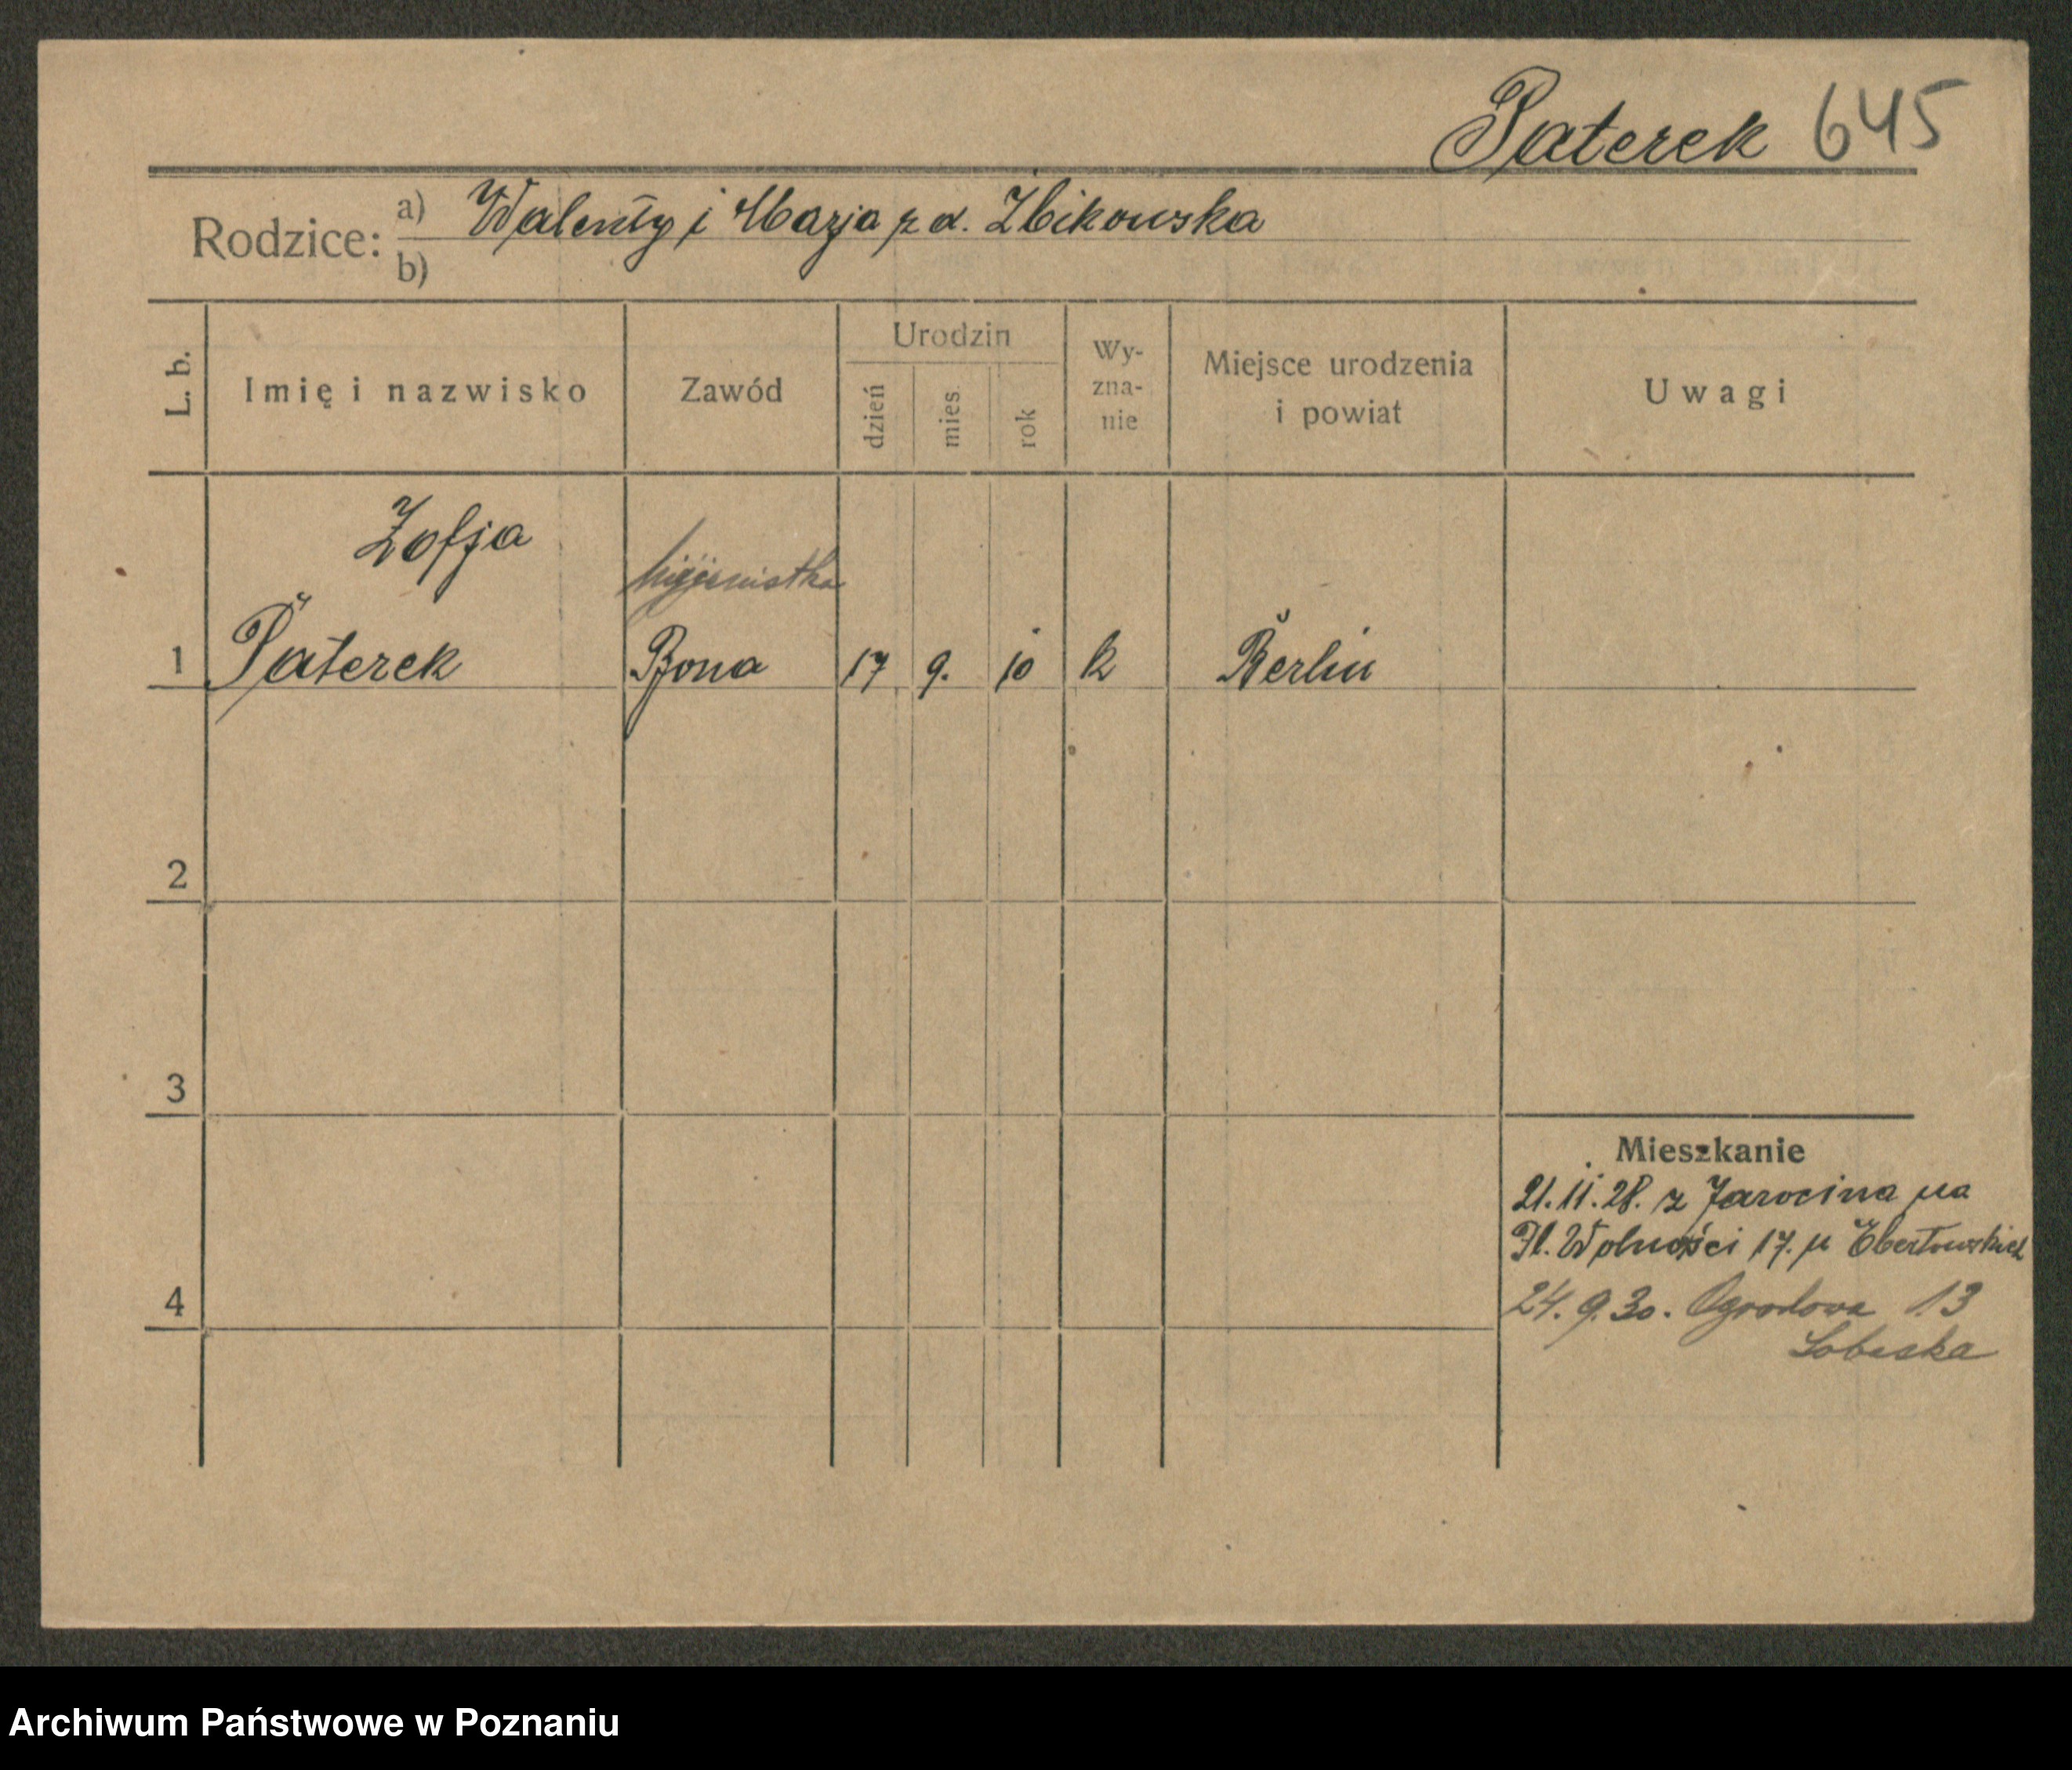 Paterek 645
Rodzice: a) Walenty i Marja z d. Zbikowska
b)
L. b. Imię i nazwisko Zawód Urodzin dzień mies. rok Wy- zna- nie Miejsce urodzenia i powiat Uwagi
Zofja
higjenistka
1 Paterek Bona 17 9. 10 k Berlin
2
3
Mieszkanie
21.11.28. z Jarocina na
Pl. Wolności 17. u
4 24.9.30. Ogrodowa 13
Archiwum Państwowe w Poznaniu